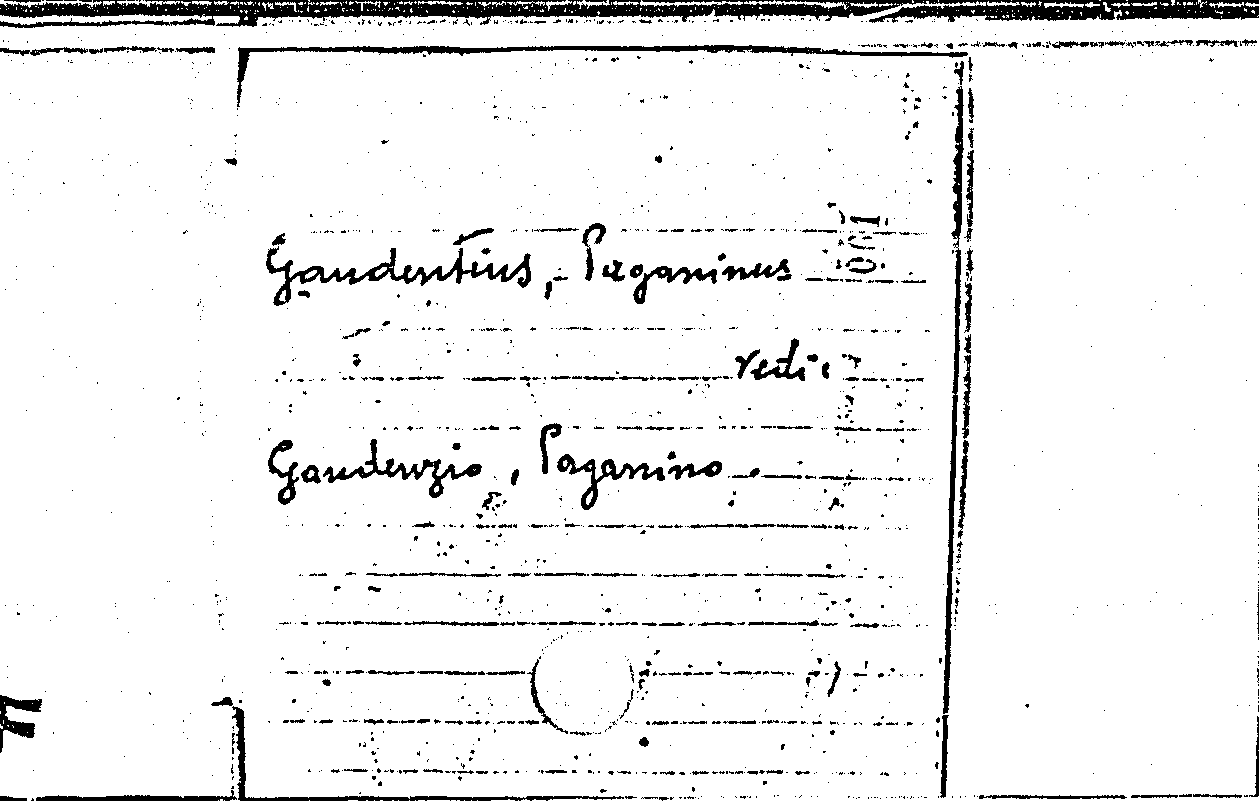 Gaudentius, Paganinus
vedi:
Gaudenzio, Paganino.